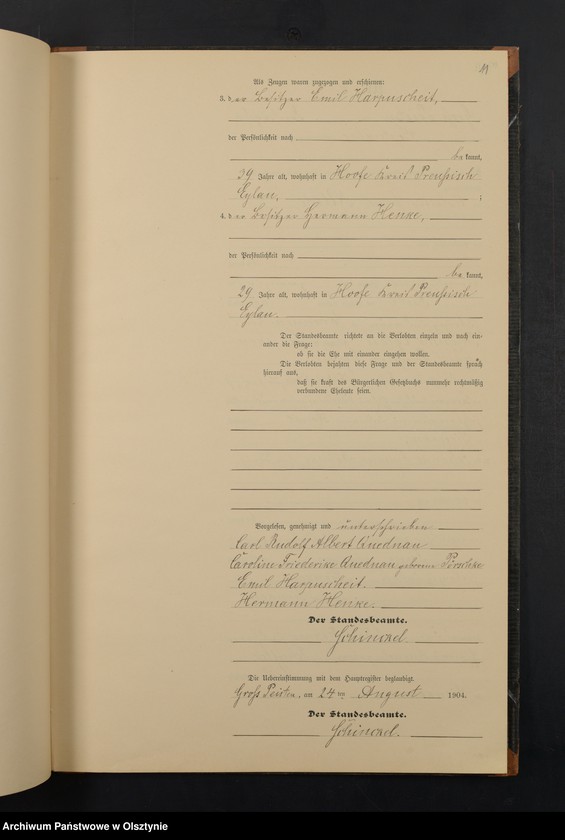 11
Als Zeugen waren zugezogen und erschienen:
3. der Besitzer Emil Harpuscheit,
der Persönlichkeit nach
be kannt,
39 Jahre alt, wohnhaft in Hoofe Kreis Preußisch
Eylau, ;
4. der Besitzer Hermann Henke,
der Persönlichkeit nach
be kannt,
29 Jahre alt, wohnhaft in Hoofe Kreis Preußisch
Eylau.
Der Standesbeamte richtete an die Verlobten einzeln und nach ein-
ander die Frage:
ob sie die Ehe mit einander eingehen wollen.
Die Verlobten bejahten diese Frage und der Standesbeamte sprach
hierauf aus,
daß sie kraft des Bürgerlichen Gesetzbuchs nunmehr rechtmäßig
verbundene Eheleute seien.
Vorgelesen, genehmigt und unterschrieben
Carl Rudolf Albert Quednau
Caroline Friederike Quednau geborene Pörschke
Emil Harpuscheit
Hermann Henke.
Der Standesbeamte.
Schinckel.
Die Uebereinstimmung mit dem Hauptregister beglaubigt.
Groß Peisten, am 24ten August 1904.
Der Standesbeamte.
Schinckel.
Archiwum Państwowe w Olsztynie